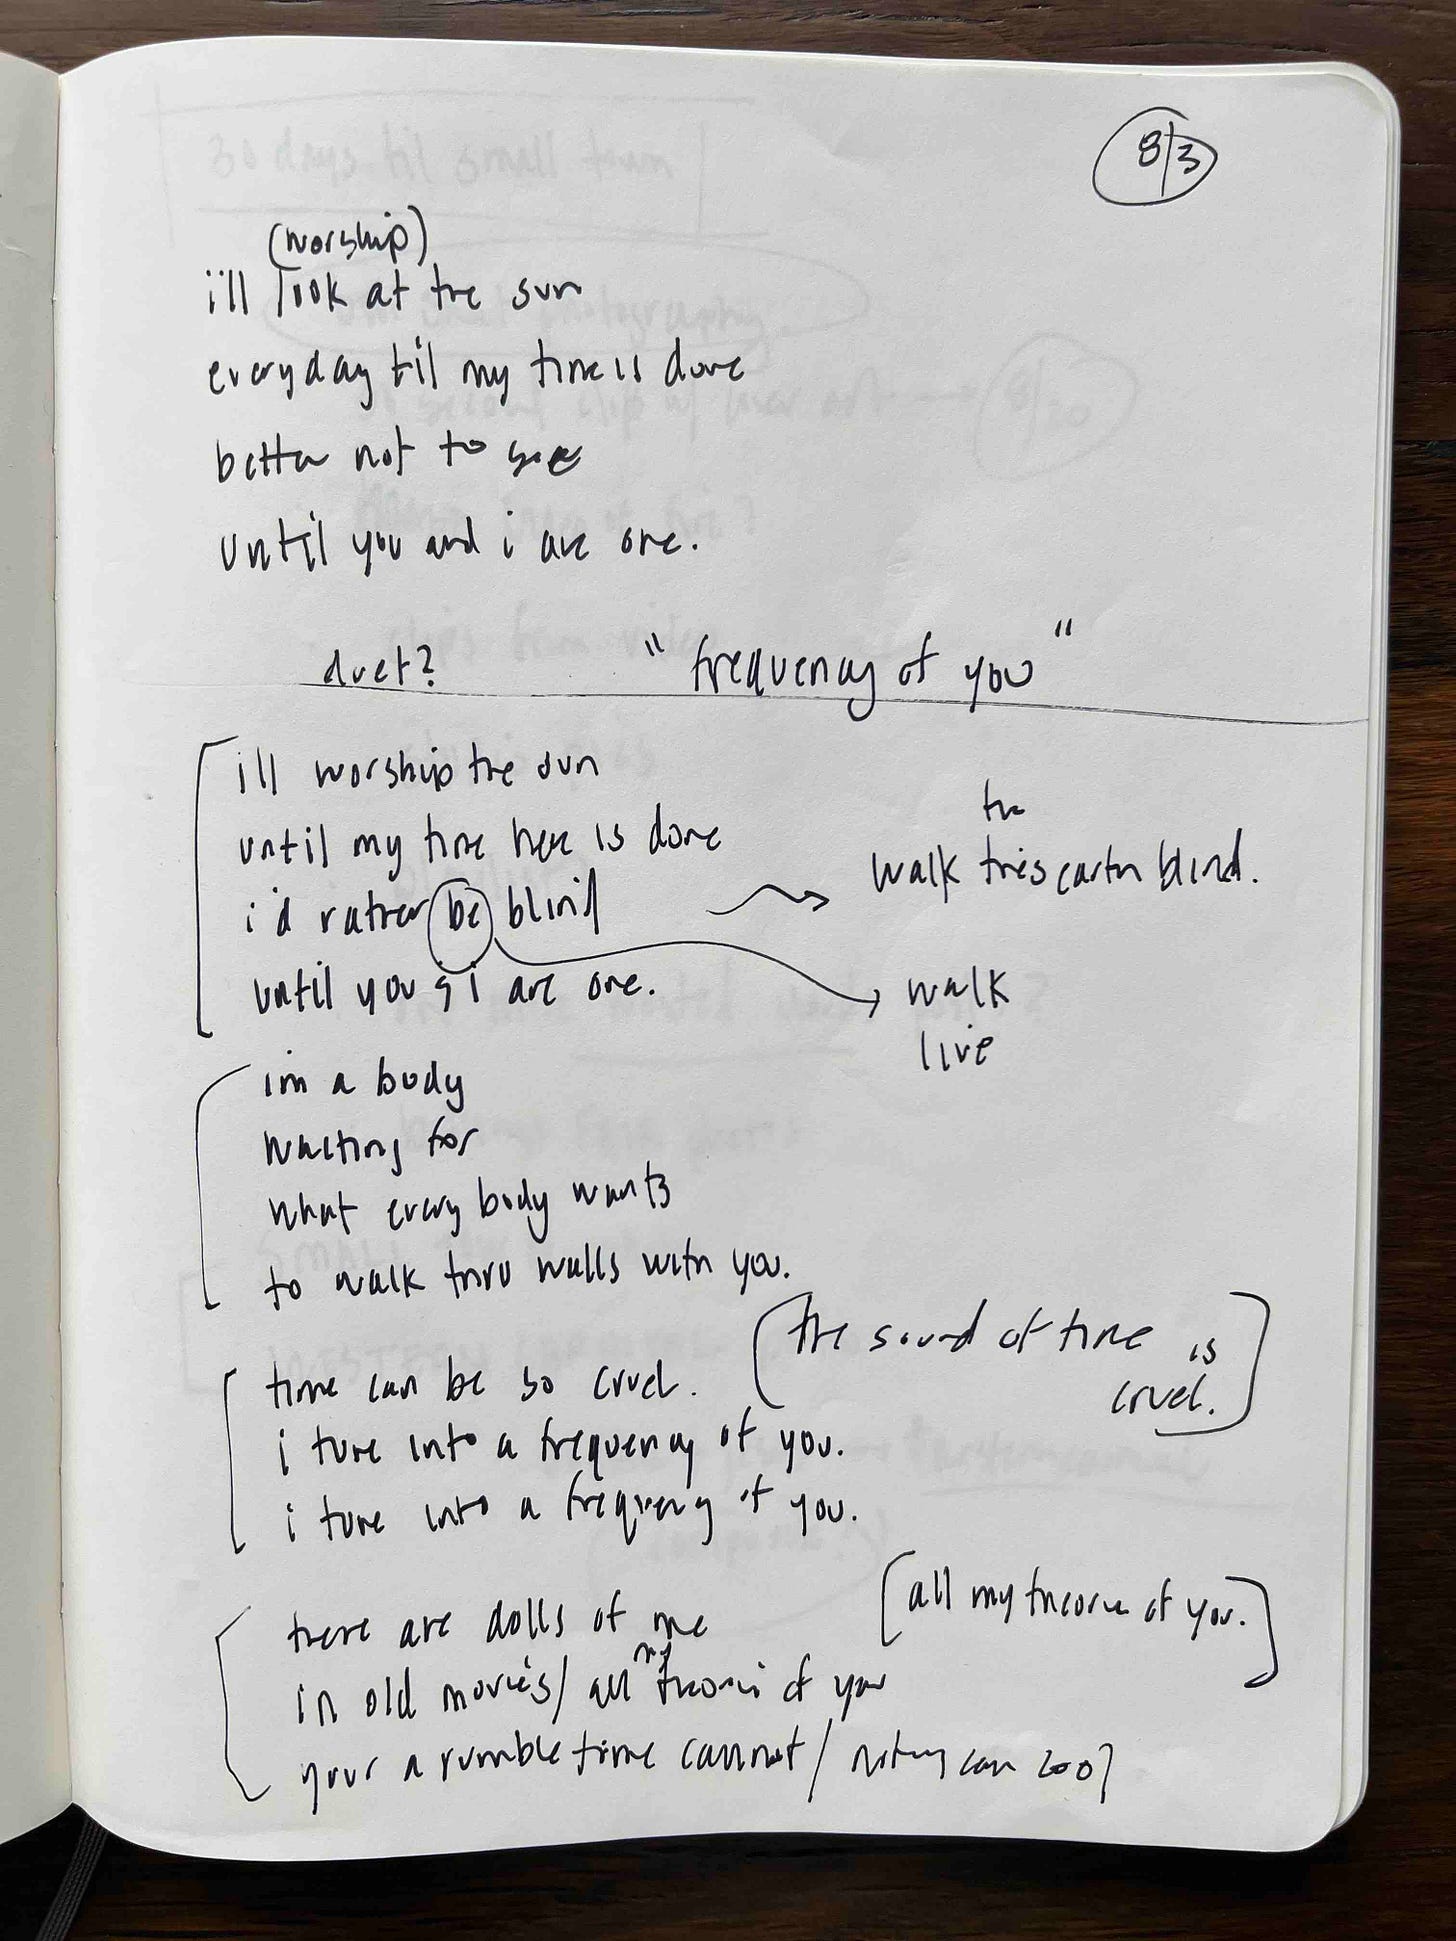 8/3
(worship)
i'll look at the sun
everyday til my time is done
better not to see
until you and i are one.
duet? "frequency of you"
ill worship the sun
until my time here is done
the
i'd rather be blind walk this earth blind.
until you & i are one. walk
live
im a body
waiting for
what every body wants
to walk thru walls with you.
(the sound of time is
cruel.)
time can be so cruel.
i tune into a frequency of you.
i tune into a frequency of you.
[all my theories of you.]
there are dolls of me
my
in old movies/ all theories of you
your a rumble time cannot/ nothing can
30 days til small town
photography
8/20
clips from video